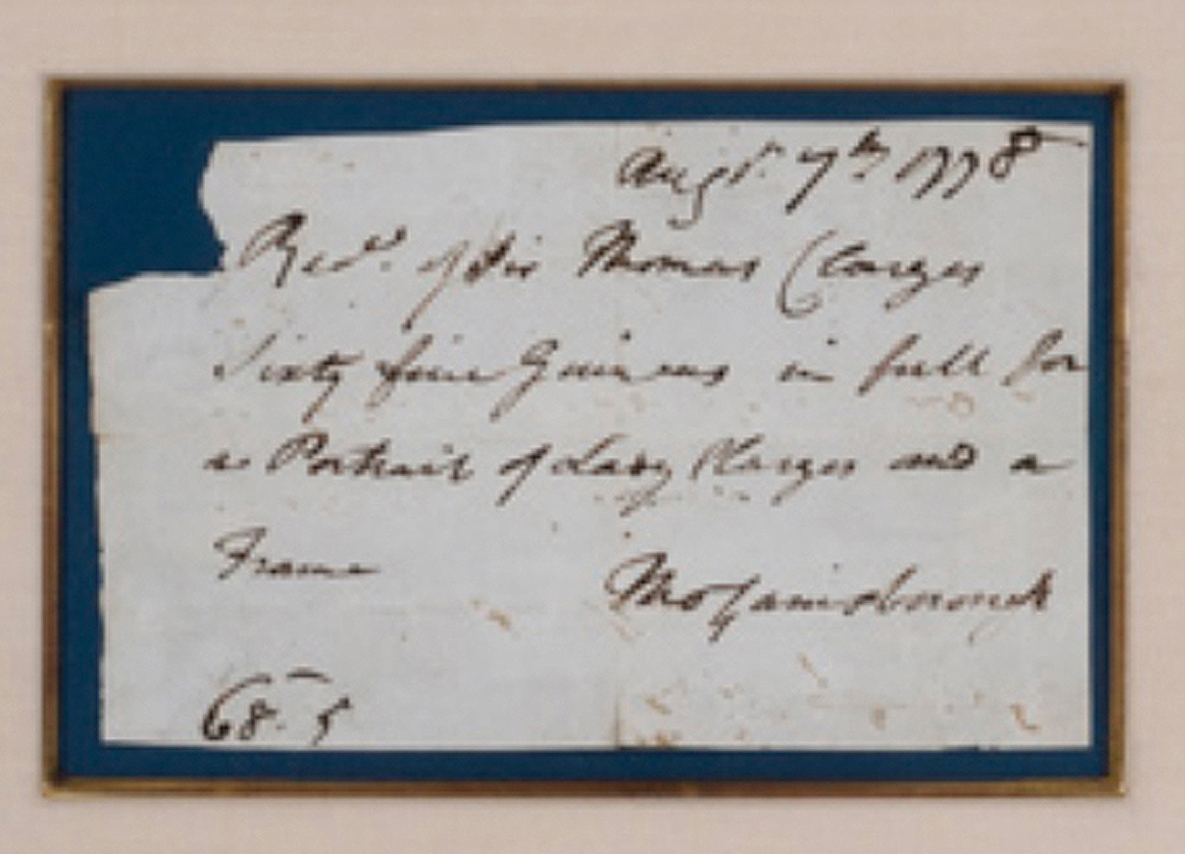 Augst. 7th 1778
Recd. of Sir Thomas Clarges
Sixty five Guineas in full for
a Portrait of Lady Clarges and a
Frame
Tho Gainsborough
68-5